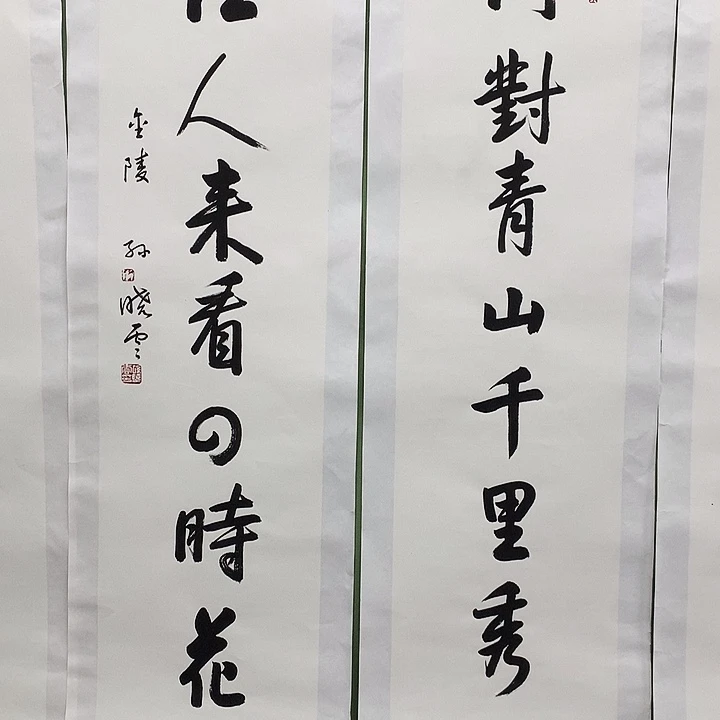 對青山千里秀
人来看四時花
金陵 孙晓雲